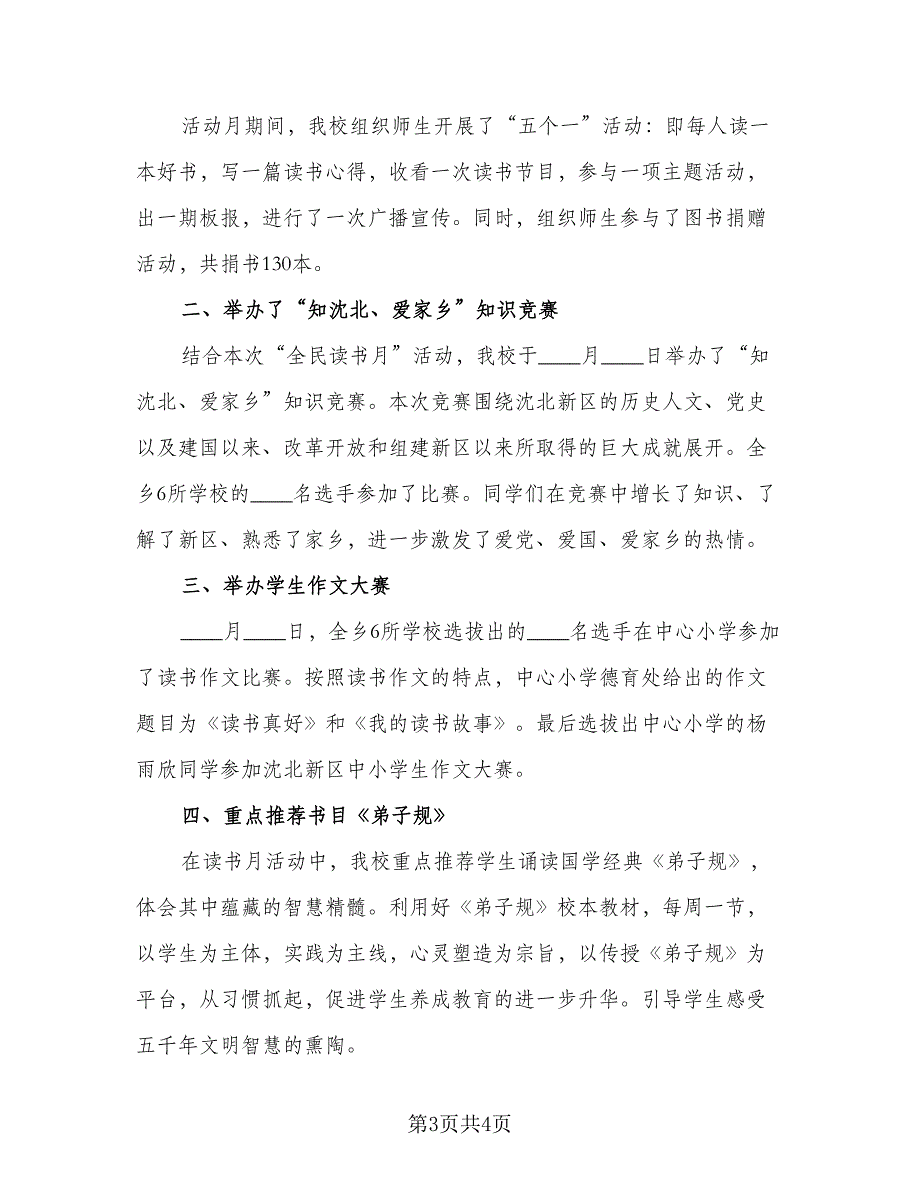 活动月期间，我校组织师生开展了“五个一”活动：即每人读一
本好书，写一篇读书心得，收看一次读书节目，参与一项主题活动，
出一期板报，进行了一次广播宣传。同时，组织师生参与了图书捐赠
活动，共捐书130本。
二、举办了“知沈北、爱家乡”知识竞赛
结合本次“全民读书月”活动，我校于____月____日举办了“知
沈北、爱家乡”知识竞赛。本次竞赛围绕沈北新区的历史人文、党史
以及建国以来、改革开放和组建新区以来所取得的巨大成就展开。全
乡6所学校的____名选手参加了比赛。同学们在竞赛中增长了知识、了
解了新区、熟悉了家乡，进一步激发了爱党、爱国、爱家乡的热情。
三、举办学生作文大赛
____月____日，全乡6所学校选拔出的____名选手在中心小学参加
了读书作文比赛。按照读书作文的特点，中心小学德育处给出的作文
题目为《读书真好》和《我的读书故事》。最后选拔出中心小学的杨
雨欣同学参加沈北新区中小学生作文大赛。
四、重点推荐书目《弟子规》
在读书月活动中，我校重点推荐学生诵读国学经典《弟子规》，
体会其中蕴藏的智慧精髓。利用好《弟子规》校本教材，每周一节，
以学生为主体，实践为主线，心灵塑造为宗旨，以传授《弟子规》为
平台，从习惯抓起，促进学生养成教育的进一步升华。引导学生感受
五千年文明智慧的熏陶。
第3页共4页